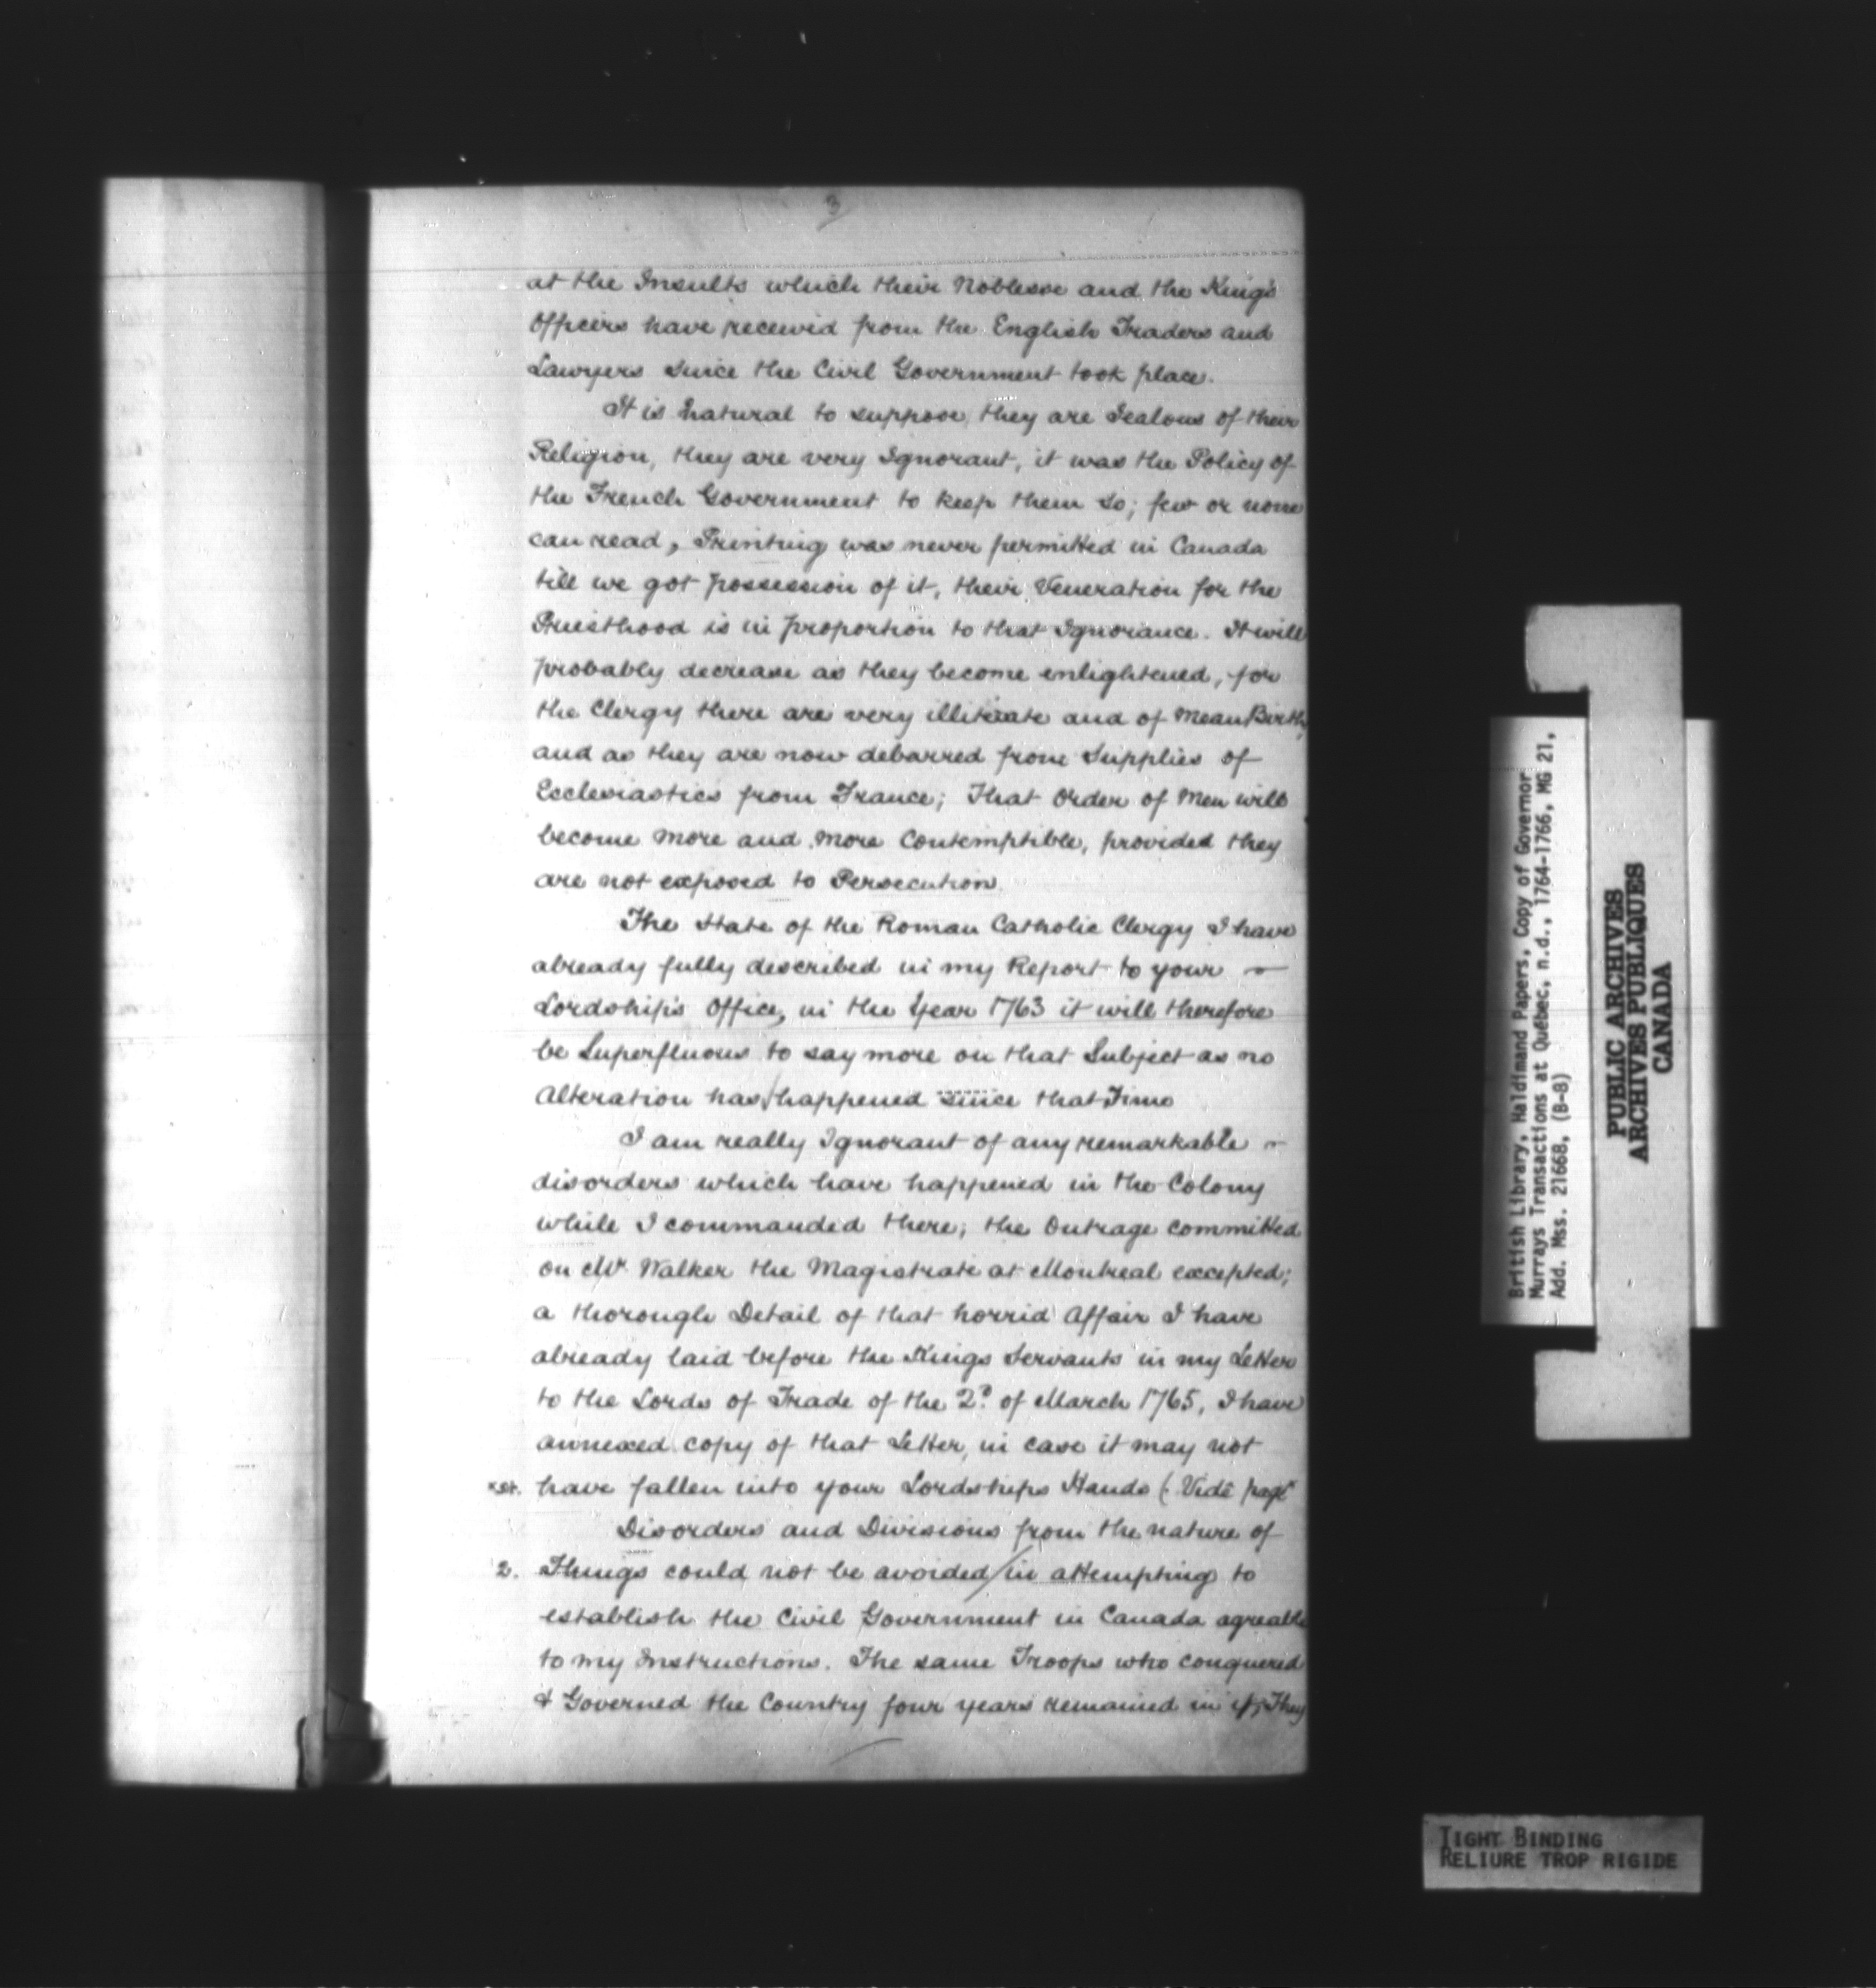 3
at the Insults which their Noblesse and the King's
Officers have received from the English Traders and
Lawyers since the Civil Government took place.
It is Natural to suppose, they are Jealous of their
Religion, they are very Ignorant, it was the Policy of
the French Government to keep them so; few or none
can read, Printing was never permitted in Canada
till we got possession of it, their Veneration for the
Priesthood is in proportion to that Ignorance. It will
probably decrease as they become enlightened, for
the Clergy there are very illiterate and of Mean Birth,
and as they are now debarred from Supplies of
Ecclesiastics from France; That Order of Men will
become more and more Contemptible, provided they
are not exposed to Persecution.
The State of the Roman Catholic Clergy I have
already fully described in my Report to your
Lordship's Office, in the Year 1763 it will therefore
be Superfluous to say more on that Subject as no
Alteration has happened since that Time
I am really Ignorant of any remarkable
disorders which have happened in the Colony
while I commanded there; the Outrage committed
on Mr Walker the Magistrate at Montreal excepted;
a thorough Detail of that horrid Affair I have
already laid before the Kings Servants in my Letter
to the Lords of Trade of the 2d of March 1765, I have
annexed copy of that Letter, in case it may not
have fallen into your Lordships Hands (Vide page
Disorders and Divisions from the nature of
2. Things could not be avoided/in attempting to
establish the Civil Government in Canada agreable
to my Instructions. The same Troops who conquered
& Governed the Country four years remained in it; They
British Library, Haldimand Papers, Copy of Governor
Murrays Transactions at Québec, n.d., 1764-1766, MG 21,
Add. Mss. 21668, (B-8)
PUBLIC ARCHIVES
ARCHIVES PUBLIQUES
CANADA
TIGHT BINDING
RELIURE TROP RIGIDE